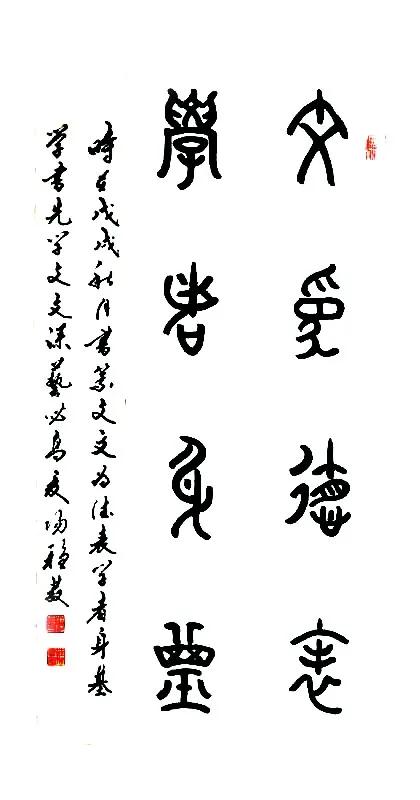 文爲德表
學者身基
時在戊戌秋月書篆文文为德表学者身基
学書先学文文深藝必高